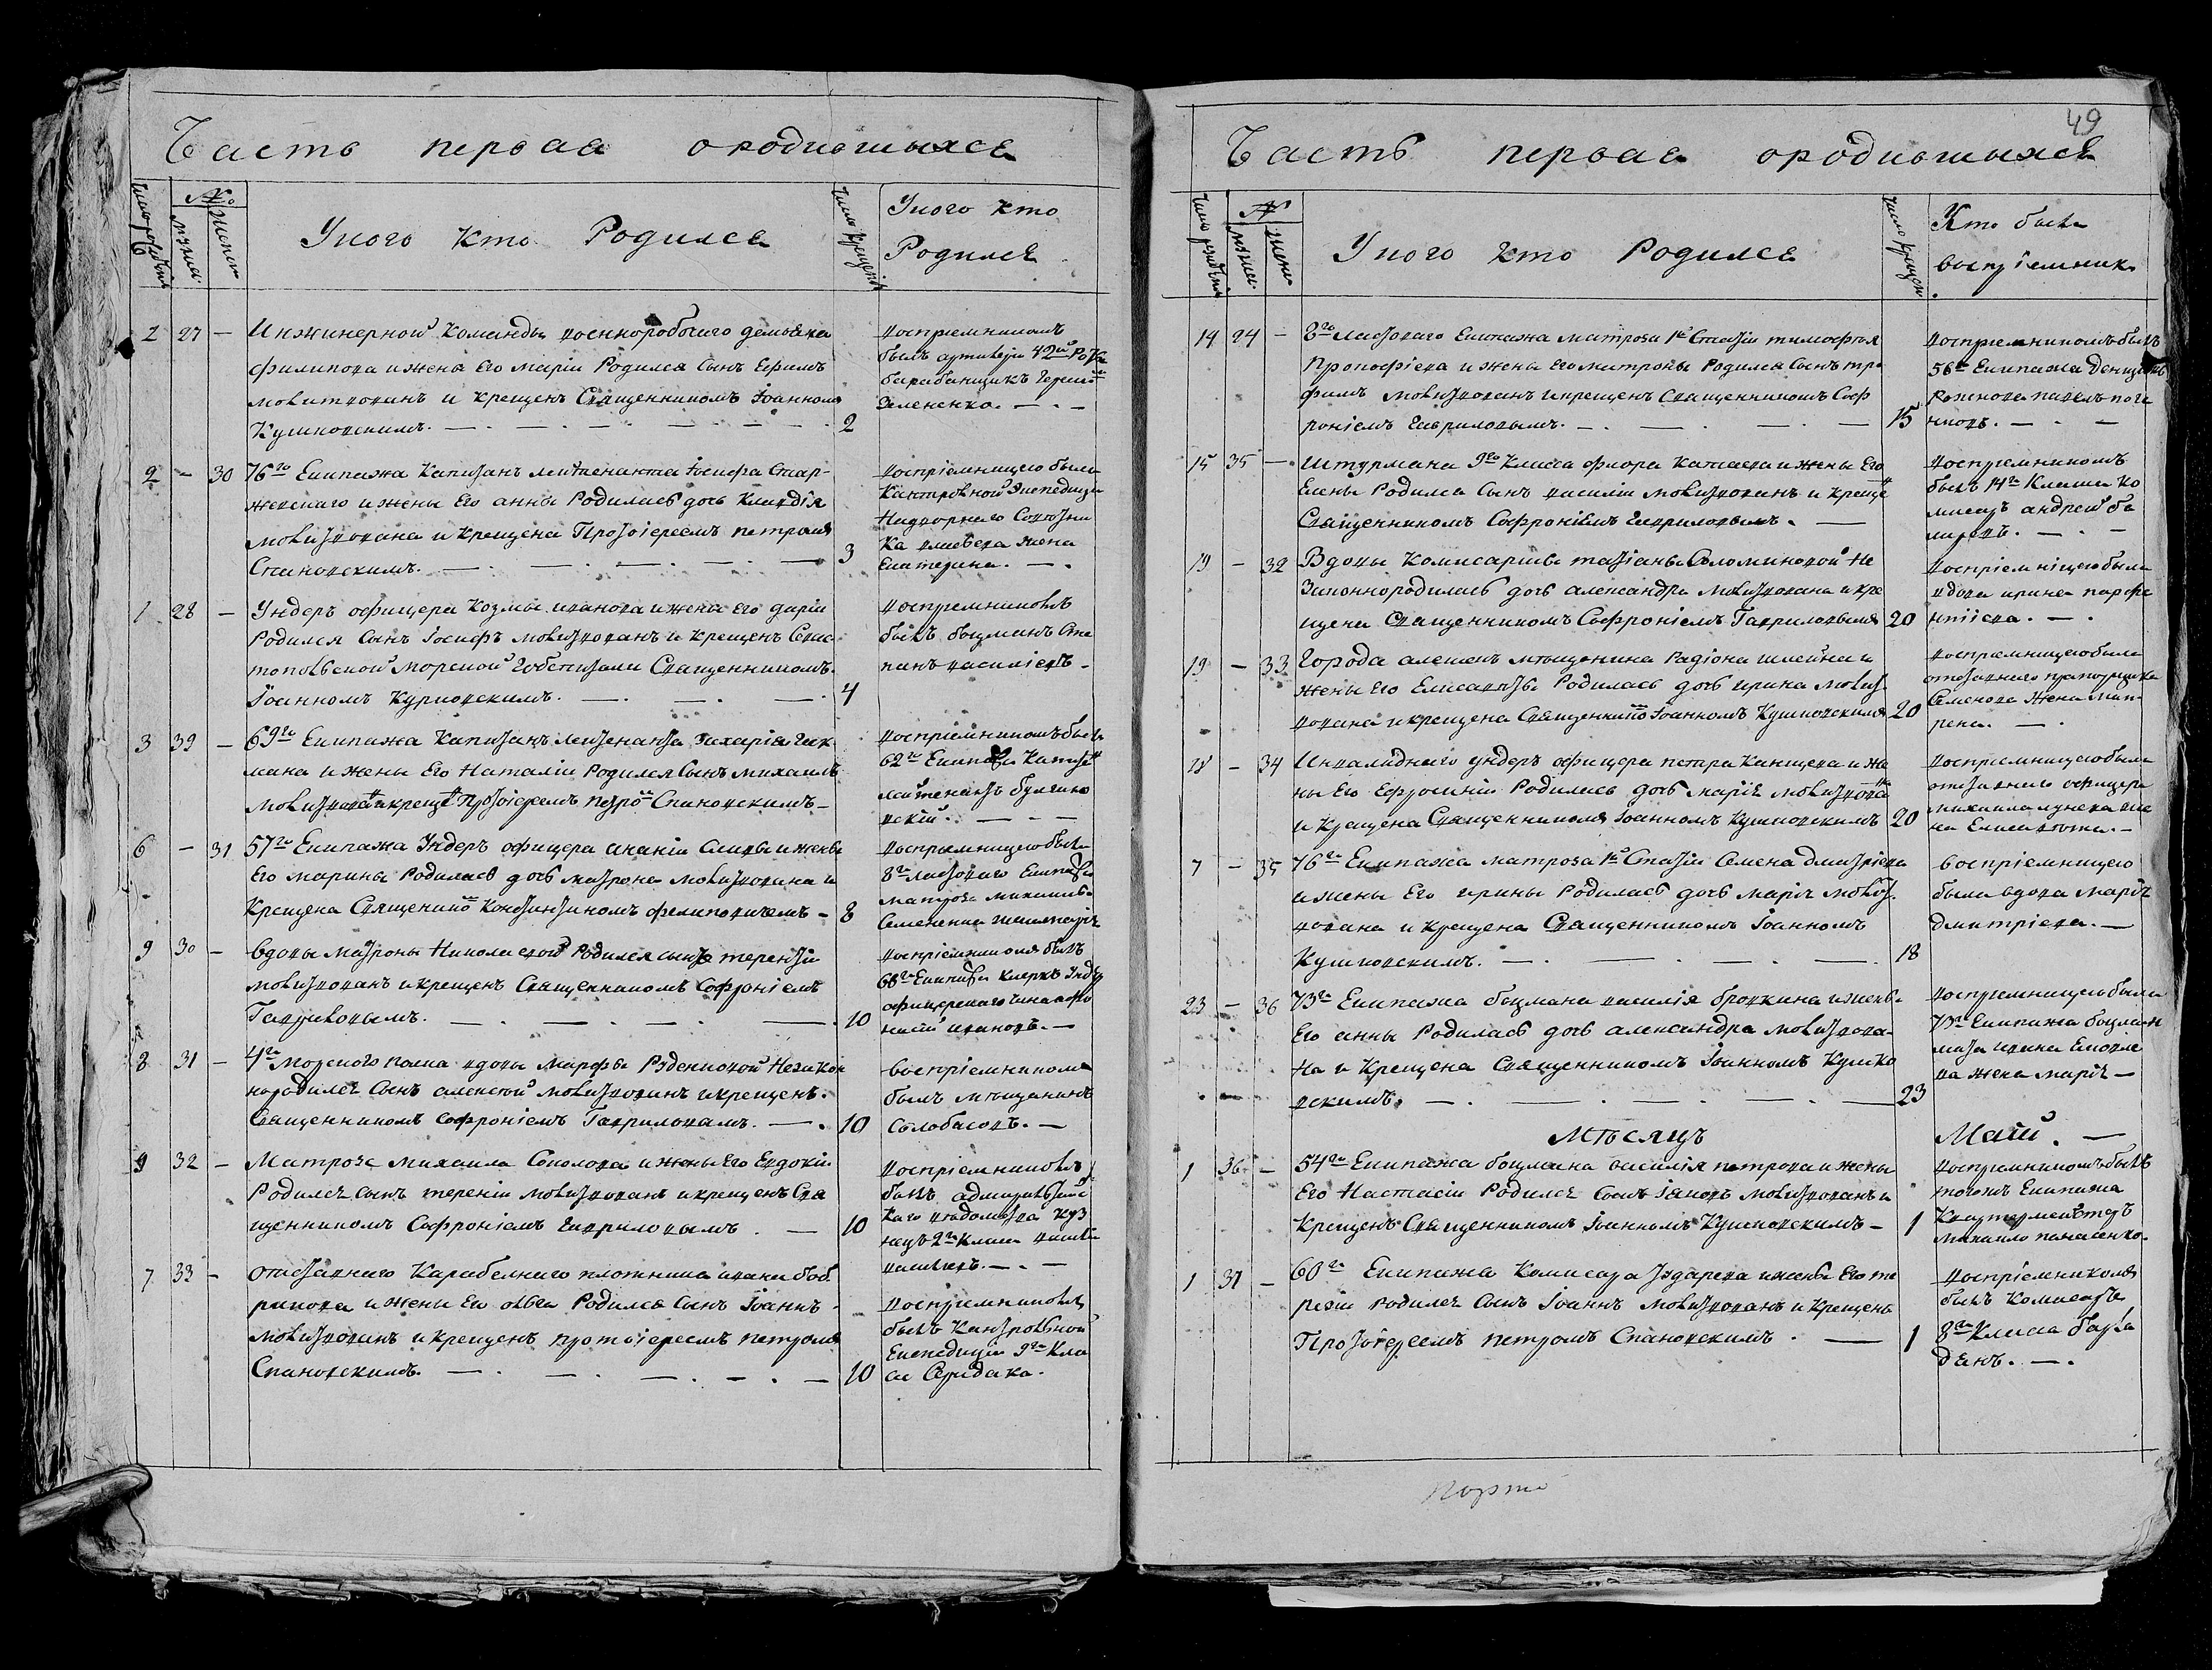 Часть первая ородившыхся
Число рожденія
№
мужеска
женска
У кого кто Родился
Число крещенія
У кого кто
Родился
2 27 — Инжинерной Команды военноробочаго демьяна
филипова и жены Его маріи Родился Сынъ Ефимъ
молитвованъ и крещенъ Священникомъ Іоанномъ
Кушковскимъ. 2
воспріемникомъ
былъ артилеріи 42й роты
барабанщикъ
Зелененко.
2 — 30 76го Екипажа Капитанъ лейтенанта Іосифа Стар-
жевскаго и жены Его анны Родилась дочь Клавдія
молитвована и крещена Протоіереемъ петромъ
Спановскимъ. 3
воспріемницею была
Кантрольной Экспедиціи
Надворнаго Советни
ка жена
Екатерина.
1 28 — Ундеръ офицера Козмы иванова и жены его даріи
Родился Сынъ Іосифъ молитвованъ и крещенъ Севас-
топольской морской Гобспитали Священникомъ
Іоанномъ Курповскимъ. 4
воспріемникомъ
былъ боцманъ Сте
панъ василіевъ
3 39 — 69го Екипажа Капитанъ лейтенанта Захаріа
мана и жены Его Наталіи Родился Сынъ михаилъ
молитвованъ и крещенъ Протоіереемъ петромъ Спановскимъ —
воспріемникомъ былъ
62го Екипажа Капитанъ
лейтенантъ
вскій.
6 — 31 57го Екипажа Ундеръ офицера ананіи и жены
Его марины Родилась дочь матрона молитвована и
Крещена Священникомъ Константиномъ филиповичемъ — 8
воспріемницею была
8го ластоваго Екипажа
матроза михаила
Семененка жена марія
9 30 — Вдовы матроны Николаевой Родился сынъ терентій
молитвованъ и крещенъ Священникомъ Софроніемъ
Гавриловымъ. 10
воспріемникомъ былъ
68го Екипажа клеркъ Ундеръ
офицерскаго чина афо
насій ивановъ. —
8 31 — 4го морскаго полка вдовы Марфы Руденковой Незакон
нородился Сынъ алексей молитвованъ и крещенъ
Священникомъ Софроніемъ Гавриловымъ. 10
воспріемникомъ
былъ мѣщанинъ
Сѣлобасовъ. —
9 32 — Матроза михаила Соколова и жены Его Евдокіи
Родился сынъ терентій молитвованъ и крещенъ Свя
щенникомъ Софроніемъ Гавриловымъ. — 10
воспріемникомъ
былъ адмиралтейс
каго вѣдомства куз
нецъ 2го Класа
васильевъ. —
7 33 — отставнаго Карабелнаго плотника ивана боб
рикова и жены Его ольги Родился Сынъ Іоаннъ
молитвованъ и крещенъ протоіереемъ петромъ
Спановскимъ. 10
воспріемникомъ
былъ Кантрольной
Екпедиціи 9го Кла
са Середака.
49
Часть первая ородившыхся
Число рожденія
№
мужеска
женска
У кого кто Родился
Число крещенія
Кто былъ
воспріемник
14 24 — 8го ластоваго Екипажа матроза 1й Статіи тимофея
Прокофіева и жены Его матроны Родился Сынъ тро
фимъ молитвованъ и крещенъ Священникомъ Соф
роніемъ Гавриловымъ. 15
воспріемникомъ былъ
56го Екипажа денщикъ
павелъ
15 35 — Штурмана 9го Класса флора Катаева и жены Его
Елены Родился Сынъ василій молитвованъ и крещенъ
Священникомъ Софроніемъ Гавриловымъ. —
воспріемникомъ
былъ 14го Класса Ко
мисаръ андрей
19 — 32 Вдовы Комисарши татіаны Соломиновой Не
Законнородилась дочь александра молитвована и кре
щена Священникомъ Софроніемъ Гавриловымъ 20
воспріемницею была
вдова ирина парфе
нтіева. —
19 — 33 Города алешекъ мѣщанина Радіона и
жены Его Елисаветы Родилась дочь ирина молит
вована и крещена Священникомъ Іоанномъ Кушковскимъ 20
воспріемницею была
отставнаго прапорщика
Семенова Жена Мат
рена. —
— 34 Инвалиднаго ундеръ офицера петра Канцева и же
ны Его Ефросиніи Родилась дочь марія молитвована
и Крещена Священникомъ Іоанномъ Кушковскимъ 20
воспріемницею была
отставнаго офицера
михаила лунева же
на Елисавета. —
7 — 35 76го Екипажа матроза 1й Статіи Семена дмитріева
и жены Его ирины Родилась дочь марія молит
вована и крещена Священникомъ Іоанномъ
Кушковскимъ. 18
воспріемницею
была вдова марія
дмитріева. —
23 — 36 73го Екипажа боцмана василія бровкина и жены
Его анны Родилась дочь александра молитвова
на и Крещена Священникомъ Іоанномъ Кушко
вскимъ. 23
воспріемницею была
73го Екипажа боцман
мата ивана
ва жена марія —
Мѣсяцъ Маій. —
1 36 — 54го Екипажа боцмана василія петрова и жены
Его Настасіи Родился Сынъ Іяковъ молитвованъ и
крещенъ Священникомъ Іоанномъ Кушковскимъ — 1
воспріемникомъ былъ
тогожъ Екипажа
Квартермейстеръ
михаило панасенко.
1 37 — 60го Екипажа Комисара и жены Его те
резіи родился Сынъ Іоаннъ молитвованъ и крещенъ
Протоіереемъ петромъ Спановскимъ. — 1
воспріемникомъ
былъ Комисаръ
8го Класа